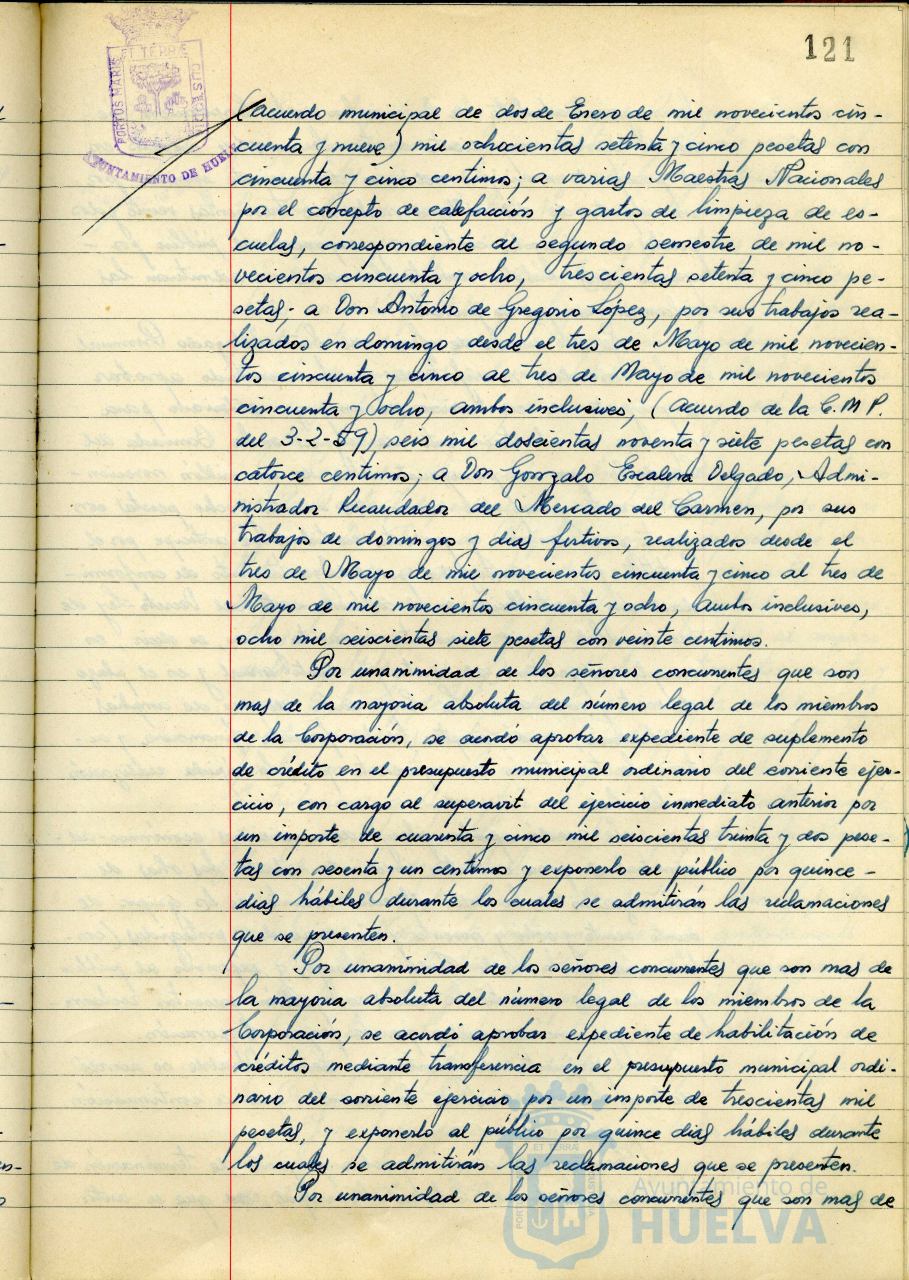 121
PORTUS MARIS ET TERRAE CUSTODIA
AYUNTAMIENTO DE HUELVA
(acuerdo municipal de dos de Enero de mil novecientos cin-
cuenta y nueve) mil ochocientas setenta y cinco pesetas con
cincuenta y cinco centimos; a varias Maestras Nacionales
por el concepto de calefacción y gastos de limpieza de es-
cuelas, correspondiente al segundo semestre de mil no-
vecientos cincuenta y ocho, trescientas setenta y cinco pe-
setas; a Don Antonio de Gregorio López, por sus trabajos rea-
lizados en domingo desde el tres de Mayo de mil novecien-
tos cincuenta y cinco al tres de Mayo de mil novecientos
cincuenta y ocho, ambos inclusives, (Acuerdo de la C.M.P.
del 3-2-59), seis mil doscientas noventa y siete pesetas con
catorce centimos; a Don Gonzalo Escalera Delgado, Admi-
nistrador Recaudador del Mercado del Carmen, por sus
trabajos de domingos y dias festivos, realizados desde el
tres de Mayo de mil novecientos cincuenta y cinco al tres de
Mayo de mil novecientos cincuenta y ocho, ambos inclusives,
ocho mil seiscientas siete pesetas con veinte centimos.
Por unanimidad de los señores concurrentes que son
mas de la mayoria absoluta del número legal de los miembros
de la Corporación, se acordó aprobar expediente de suplemento
de crédito en el presupuesto municipal ordinario del corriente ejer-
cicio, con cargo al superavit del ejercicio inmediato anterior por
un importe de cuarenta y cinco mil seiscientas treinta y dos pese-
tas con sesenta y un centimos y exponerlo al público por quince -
dias hábiles durante los cuales se admitirán las reclamaciones
que se presenten.
Por unanimidad de los señores concurrentes que son mas de
la mayoria absoluta del número legal de los miembros de la
Corporación, se acordó aprobar expediente de habilitación de
créditos mediante transferencia en el presupuesto municipal ordi-
nario del corriente ejercicio por un importe de trescientas mil
pesetas, y exponerlo al público por quince dias hábiles durante
los cuales se admitirán las reclamaciones que se presenten.
Por unanimidad de los señores concurrentes que son mas de
Ayuntamiento de
HUELVA